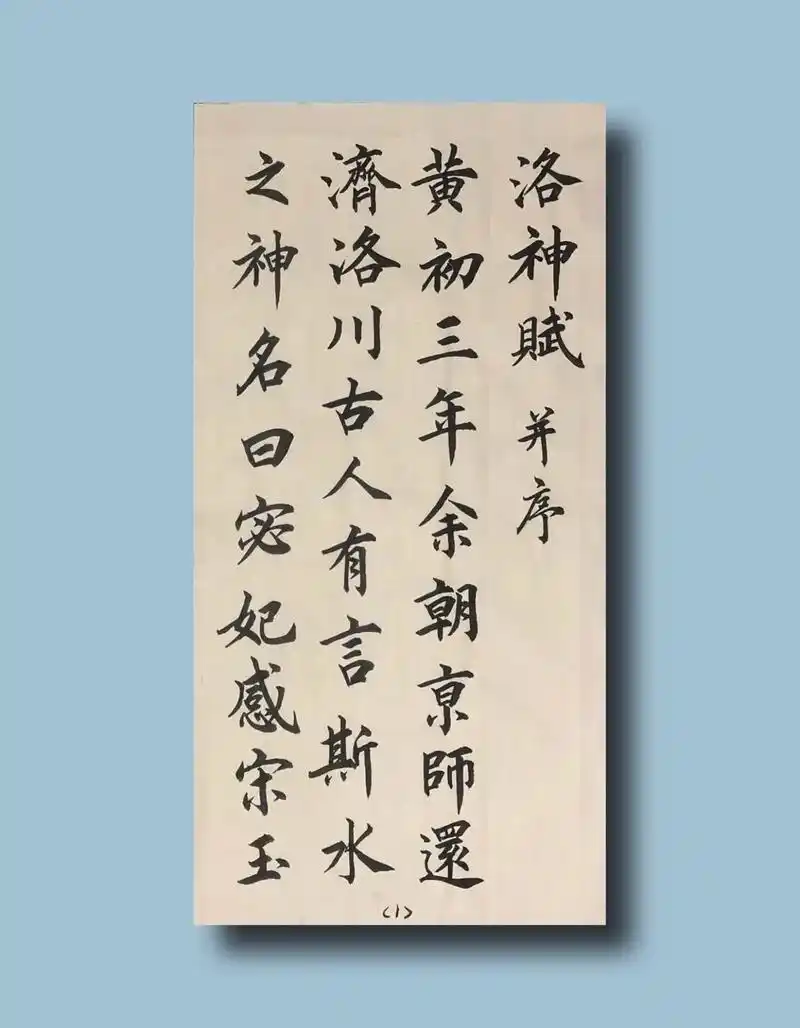 洛神賦 并序
黄初三年余朝京師還
濟洛川古人有言斯水
之神名曰宓妃感宋玉
(1)